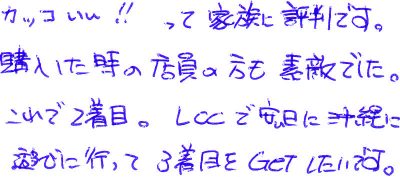 カッコいい!! って家族に評判です。
購入した時の店員の方も素敵でした。
これで2着目。 LCCで安日に沖縄に
遊びに行って3着目をGetしたいです。